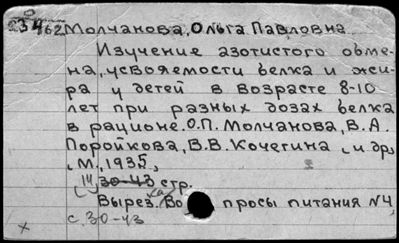 234962 Молчанова, Ольга Павловна
Изучение азотистого обме-
на, усвояемости белка и жи-
ра у детей в возрасте 8-10
лет при разных дозах белка
в рационе. О.П. Молчанова, В.А.
Поройкова, В.В. Кочегина и др.
М, 1935,
14 30-43 стр.
Вырез. Во просы питания №4
с. 30-43